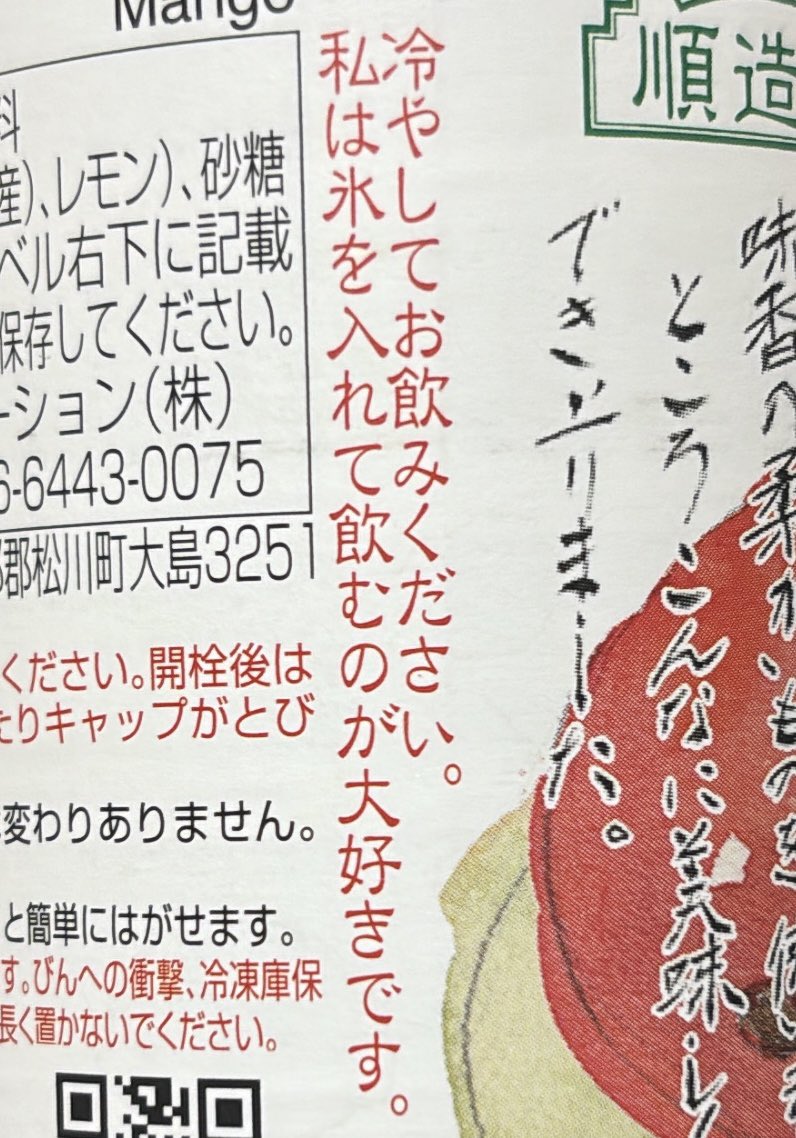 Mango
料
産)、レモン)、砂糖
ベル右下に記載
保存してください。
ーション(株)
6-6443-0075
郡松川町大島3251
ください。開栓後は
たりキャップがとび
変わりありません。
と簡単にはがせます。
す。びんへの衝撃、冷凍庫保
長く置かないでください。
冷やしてお飲みください。
私は氷を入れて飲むのが大好きです。
順造
ところこんなに美味し
でき立りました。